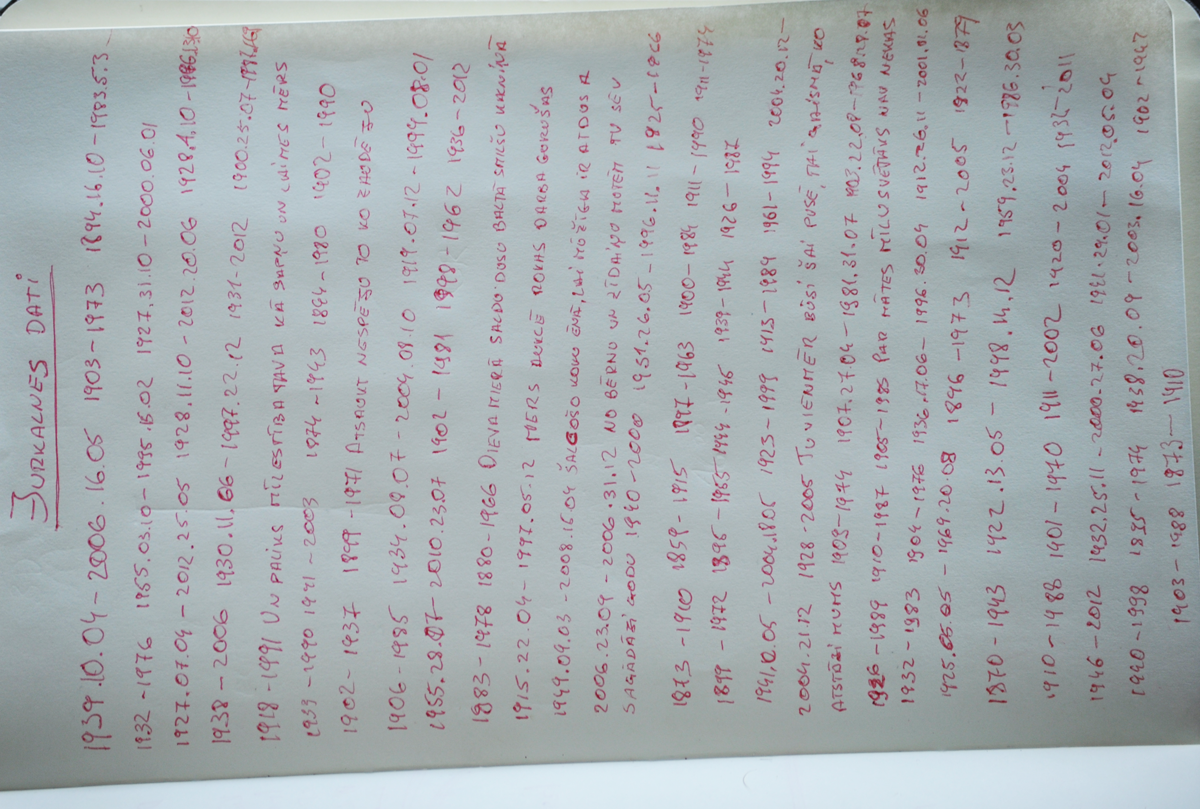 JURKALNES DATI
1939.10.04 – 2006.16.05 1903 – 1973 1894.16.10 – 1983.5.3 –
1932 – 1976 1955.03.10 – 1995.15.02 1927.31.10 – 2000.06.01
1927.07.04 – 2012.25.05 1928.11.10 – 2012.20.06 1928.11.10 –
1938 – 2006 1930.11.06 – 1997.22.12 1931 – 2012 1900.25.07 –
1918 – 1991 UN PALIKS MĪLESTĪBA TAVA KĀ SAPŅU UN LAIMES MĒRS
1939 – 1990 1941 – 2003 1874 – 1943 1894 – 1980 1902 – 1990
1902 – 1937 1899 – 1971 ATSAUKT NESPĒJO TO KO ZAUDĒJU
1906 – 1985 1934.09.07 – 2004.08.10 1919.07.12 – 1999.08.01
1955.28.07 – 2010.23.07 1902 – 1991 1898 – 1962 1936 – 2012
1983 – 1978 1880 – 1966 DIEVA MIERĀ SALDU DUSU BALTĀ SMILŠU KALNIŅĀ
1915.22.04 – 1997.05.12 MĒRS ROKAS DARBĀ GURUŠAS
1949.09.03 – 2008.15.04 ŠALCOŠO KOKU ĒNĀ, LAI MŪŽĪGA IR ATDUSA
2006.23.09 – 2006.31.12 NO BĒRNU UN ZĪDAIŅU MUTĒM TU SEV
SAGĀDĀJI GODU 1940 – 2000 1951.26.05 – 1996.11.11 1925 – 1966
1873 – 1910 1859 – 1915 1897 – 1963 1900 – 1984 1911 – 1990 1911 – 1974
1899 – 1972 1896 – 1965 1944 – 1945 1939 – 1944 1926 – 1987
1941.10.05 – 2004.18.05 1923 – 1999 1915 – 1989 1961 – 1994 2004.20.12 –
2004.21.12 1928 – 2005 TU VIENMĒR BŪSI ŠAI PUSĒ, TAI GAISMĀ, KO
ATSTĀJI MUMS 1903 – 1974 1907.27.04 – 1981.31.07 1903.22.08 – 1968.28.07
1926 – 1989 1910 – 1987 1905 – 1985 PAR MĀTES MĪLU SVĒTĀKS NAV NEKAS
1932 – 1983 1904 – 1976 1936.17.06 – 1996.30.04 1912.26.11 – 2001.01.06
1925.05.05 – 1969.20.08 1896 – 1973 1912 – 2005 1822 – 1879
1870 – 1943 1922.13.05 – 1998.14.12 1959.23.12 – 1986.30.03
1910 – 1988 1901 – 1970 1911 – 2002 1920 – 2004 1935 – 2011
1946 – 2012 1932.25.11 – 2000.27.06 1921.29.01 – 2012.05.04
1940 – 1998 1895 – 1974 1938.20.09 – 2003.16.04 1902
1903 – 1988 1873 – 1910